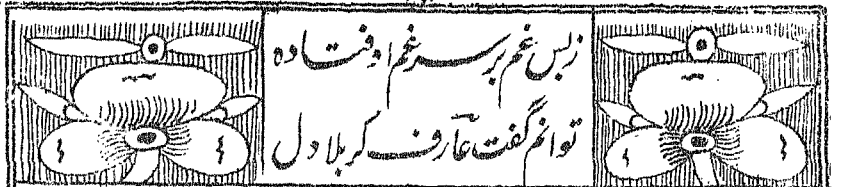 زبس غم بر سر غم اوفتاده
توانم گفت عارف کربلا دل